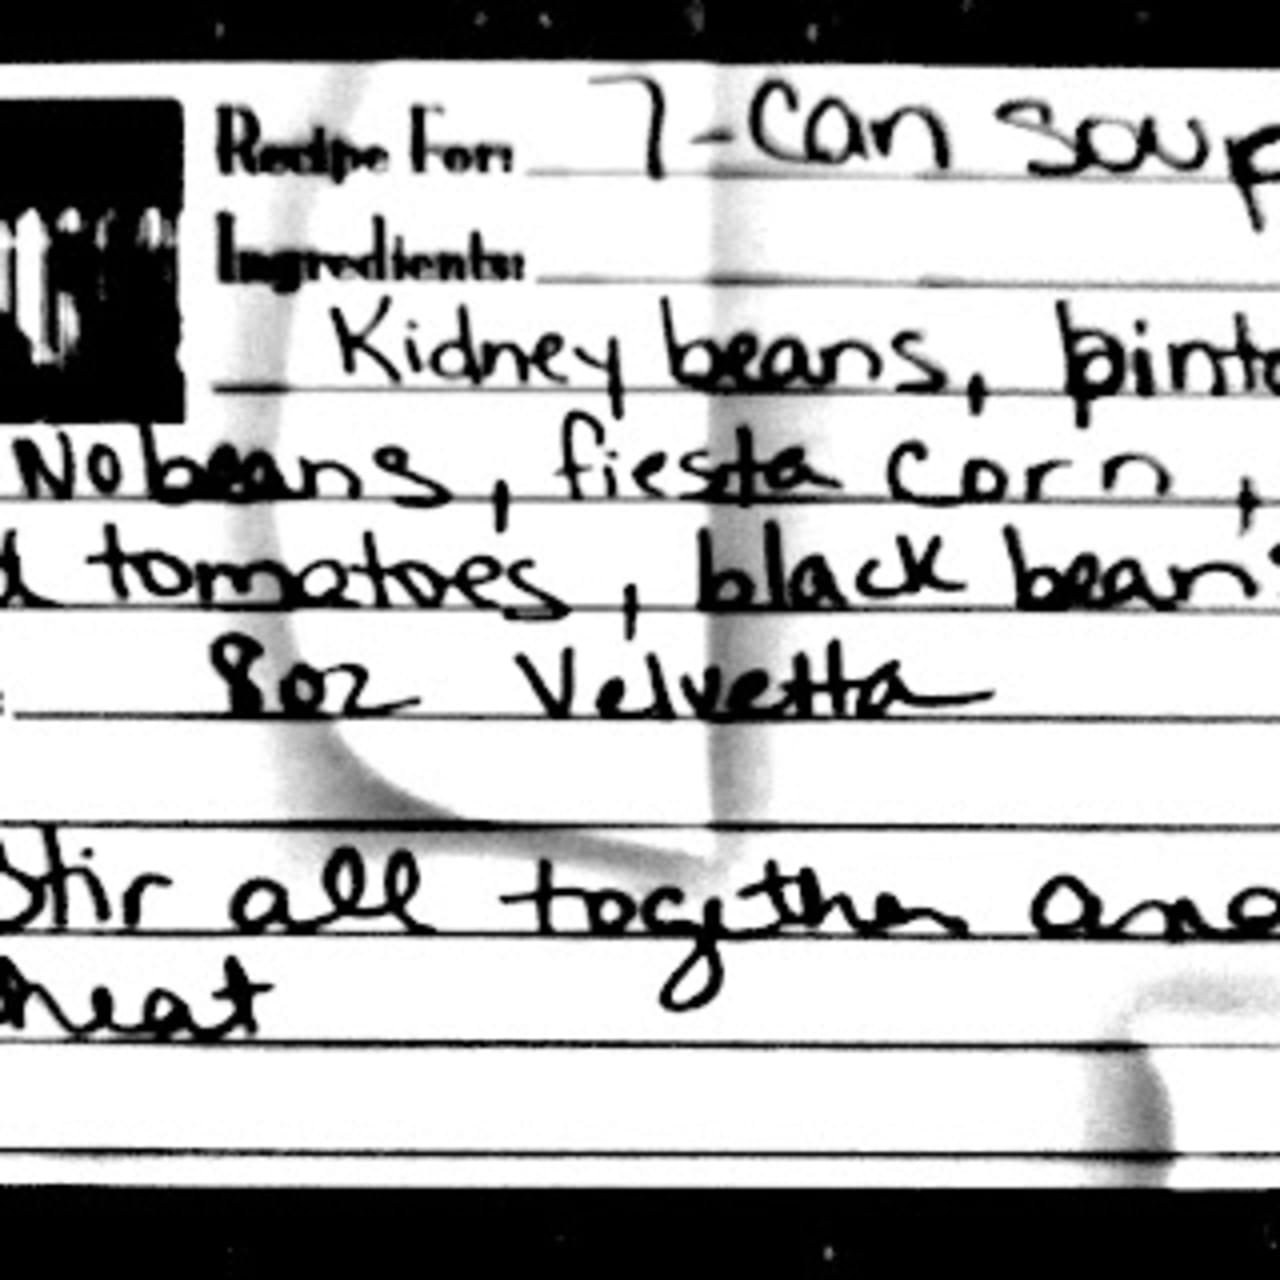 Recipe For: 7-Can Soup
Ingredients:
Kidney beans, pinto
No beans, fiesta corn,
tomatoes, black beans
8oz Velvetta
Stir all together and
heat